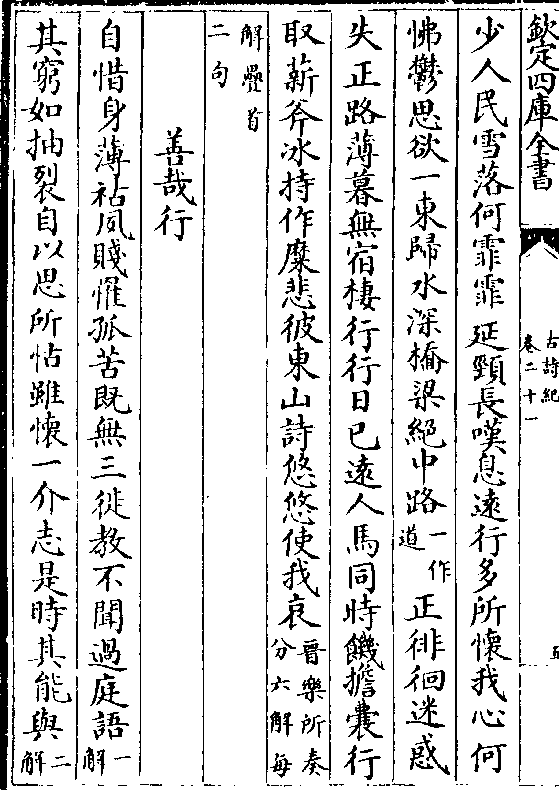 欽定四庫全書
古詩紀
卷二十一
五
少人民雪落何霏霏延頸長嘆息遠行多所懷我心何
怫鬱思欲一東歸水深橋梁絕中路一作道正徘徊迷惑
失正路薄暮無宿棲行行日已遠人馬同時饑擔囊行
取薪斧冰持作糜悲彼東山詩悠悠使我哀晉樂所奏分六解每
解疊首二句
善哉行
自惜身薄祜夙賤罹孤苦既無三徙教不聞過庭語一解
其窮如抽裂自以思所怙雖懷一介志是時其能與二解